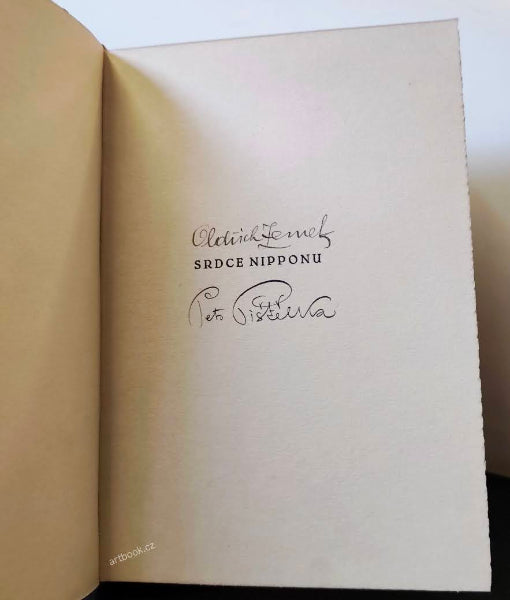 Oldřich Zemek
SRDCE NIPPONU
Petr Pištělka
artbook.cz